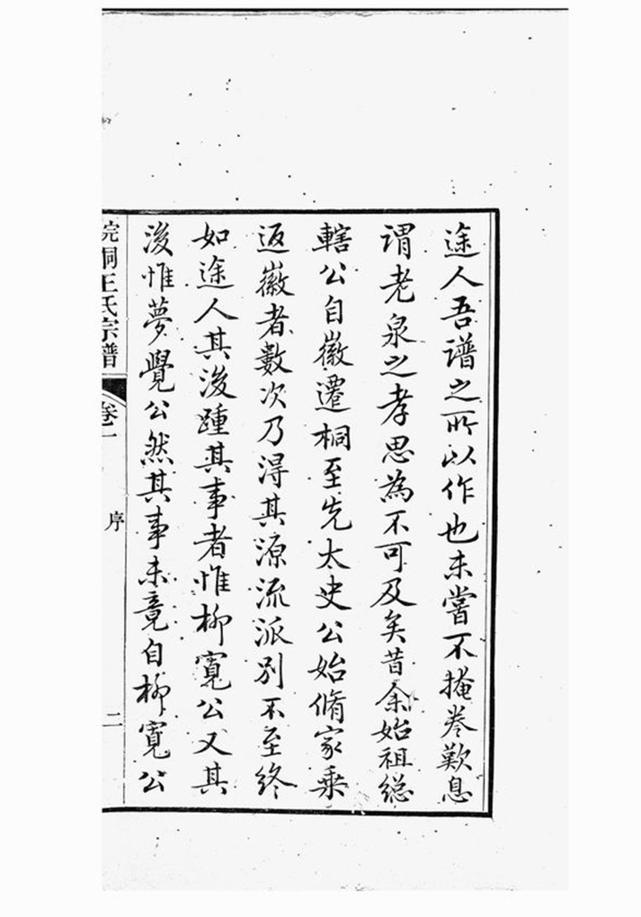 途人吾譜之所以作也未嘗不掩卷歎息
謂老泉之孝思為不可及矣昔余始祖總
轄公自徽遷桐至先太史公始脩家乘
返徽者數次乃淂其源流派别不至終
如途人其後踵其事者惟柳寬公又其
後惟夢覺公然其事未竟自柳寬公
皖桐王氏宗譜 卷一 序 二